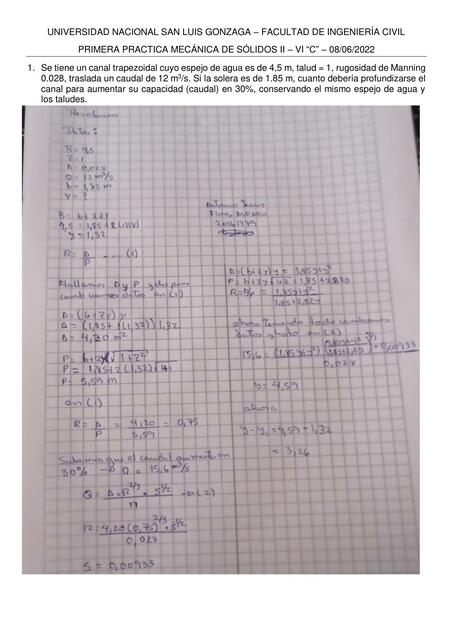 UNIVERSIDAD NACIONAL SAN LUIS GONZAGA – FACULTAD DE INGENIERÍA CIVIL
PRIMERA PRACTICA MECÁNICA DE SÓLIDOS II – VI “C” – 08/06/2022
1. Se tiene un canal trapezoidal cuyo espejo de agua es de 4,5 m, talud = 1, rugosidad de Manning
0.028, traslada un caudal de 12 m³/s. Si la solera es de 1.85 m, cuanto debería profundizarse el
canal para aumentar su capacidad (caudal) en 30%, conservando el mismo espejo de agua y
los taludes.
Resolucion
Datos:
B = 4,5
Z = 1
n = 0,028
Q = 12 m³/s
b = 1,85 m
y = ?
B = b + 2zy
4,5 = 1,85 + 2(1)(y)
y = 1,32
R = A/P ... (1)
Hallamos A y P y
datos en (1)
A = (b + zy) y
A = (1,85 + 1(1,32)) 1,32
A = 4,20 m²
P = b + 2y √1+z²
P = 1,85 + 2(1,32)
P = 5,59 m
en (1)
R = A/P = 4,20/5,59 = 0,75
Sabemos que el caudal aumento en
30% → Q = 15,6 m³/s
Q = A · R^2/3 · S^1/2 / n → (2)
12 = 4,20 (0,75)^2/3 · S^1/2 / 0,028
S = 0,00933
A = (b + zy) y = 1,85y + y²
R = A/P = 1,85y + y² / 1,85 + 2,82y
ahora
datos en (2)
0,028
y = 4,59
ahora
y - y₁ = 4,59 - 1,32
= 3,26